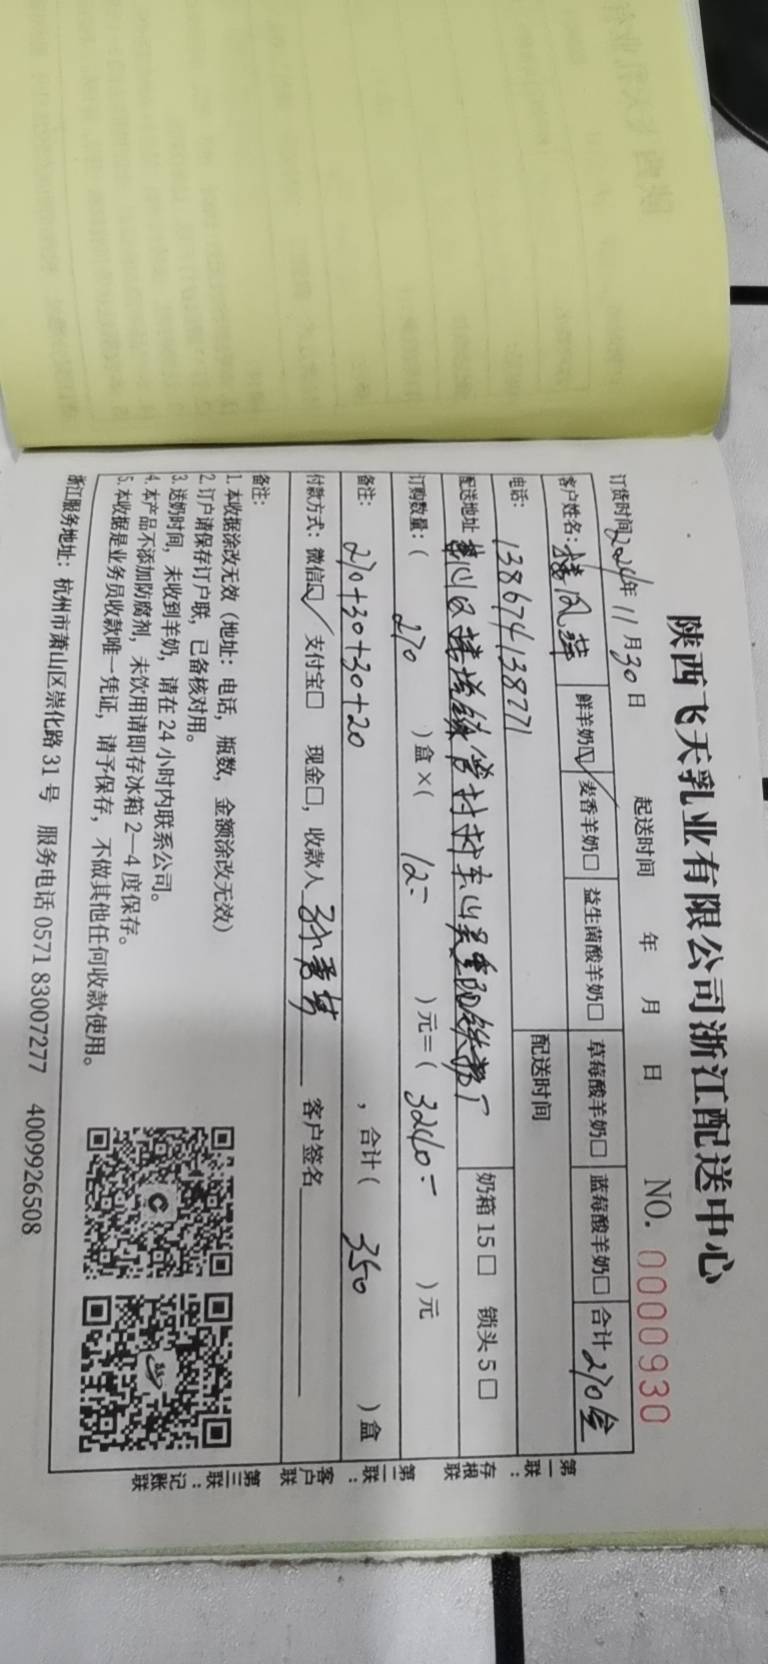 陕西飞天乳业有限公司浙江配送中心
订货时间2024年11月30日 起送时间 年 月 日 NO. 0000930
客户姓名：楼凤燕 鲜羊奶☑ 麦香羊奶□ 益生菌酸羊奶□ 草莓酸羊奶□ 蓝莓酸羊奶□ 合计270盒
电话：13867413877 配送时间
配送地址 萧山区楼塔镇 村 山 厂 奶箱15□ 锁头5□
订购数量：( 270 )盒×( 12= )元=( 3240= )元
备注：270+30+30+20 ，合计( 350 )盒
付款方式：微信☑ 支付宝□ 现金□，收款人 孙 客户签名
备注：
1. 本收据涂改无效（地址：电话，瓶数，金额涂改无效）
2. 订户请保存订户联，已备核对用。
3. 送奶时间，未收到羊奶，请在24小时内联系公司。
4. 本产品不添加防腐剂，未饮用请即存冰箱2—4度保存。
5. 本收据是业务员收款唯一凭证，请予保存，不做其他任何收款使用。
浙江服务地址：杭州市萧山区崇化路31号 服务电话 0571 83007277 4009926508
第一联：存根联
第二联：客户联
第三联：记账联